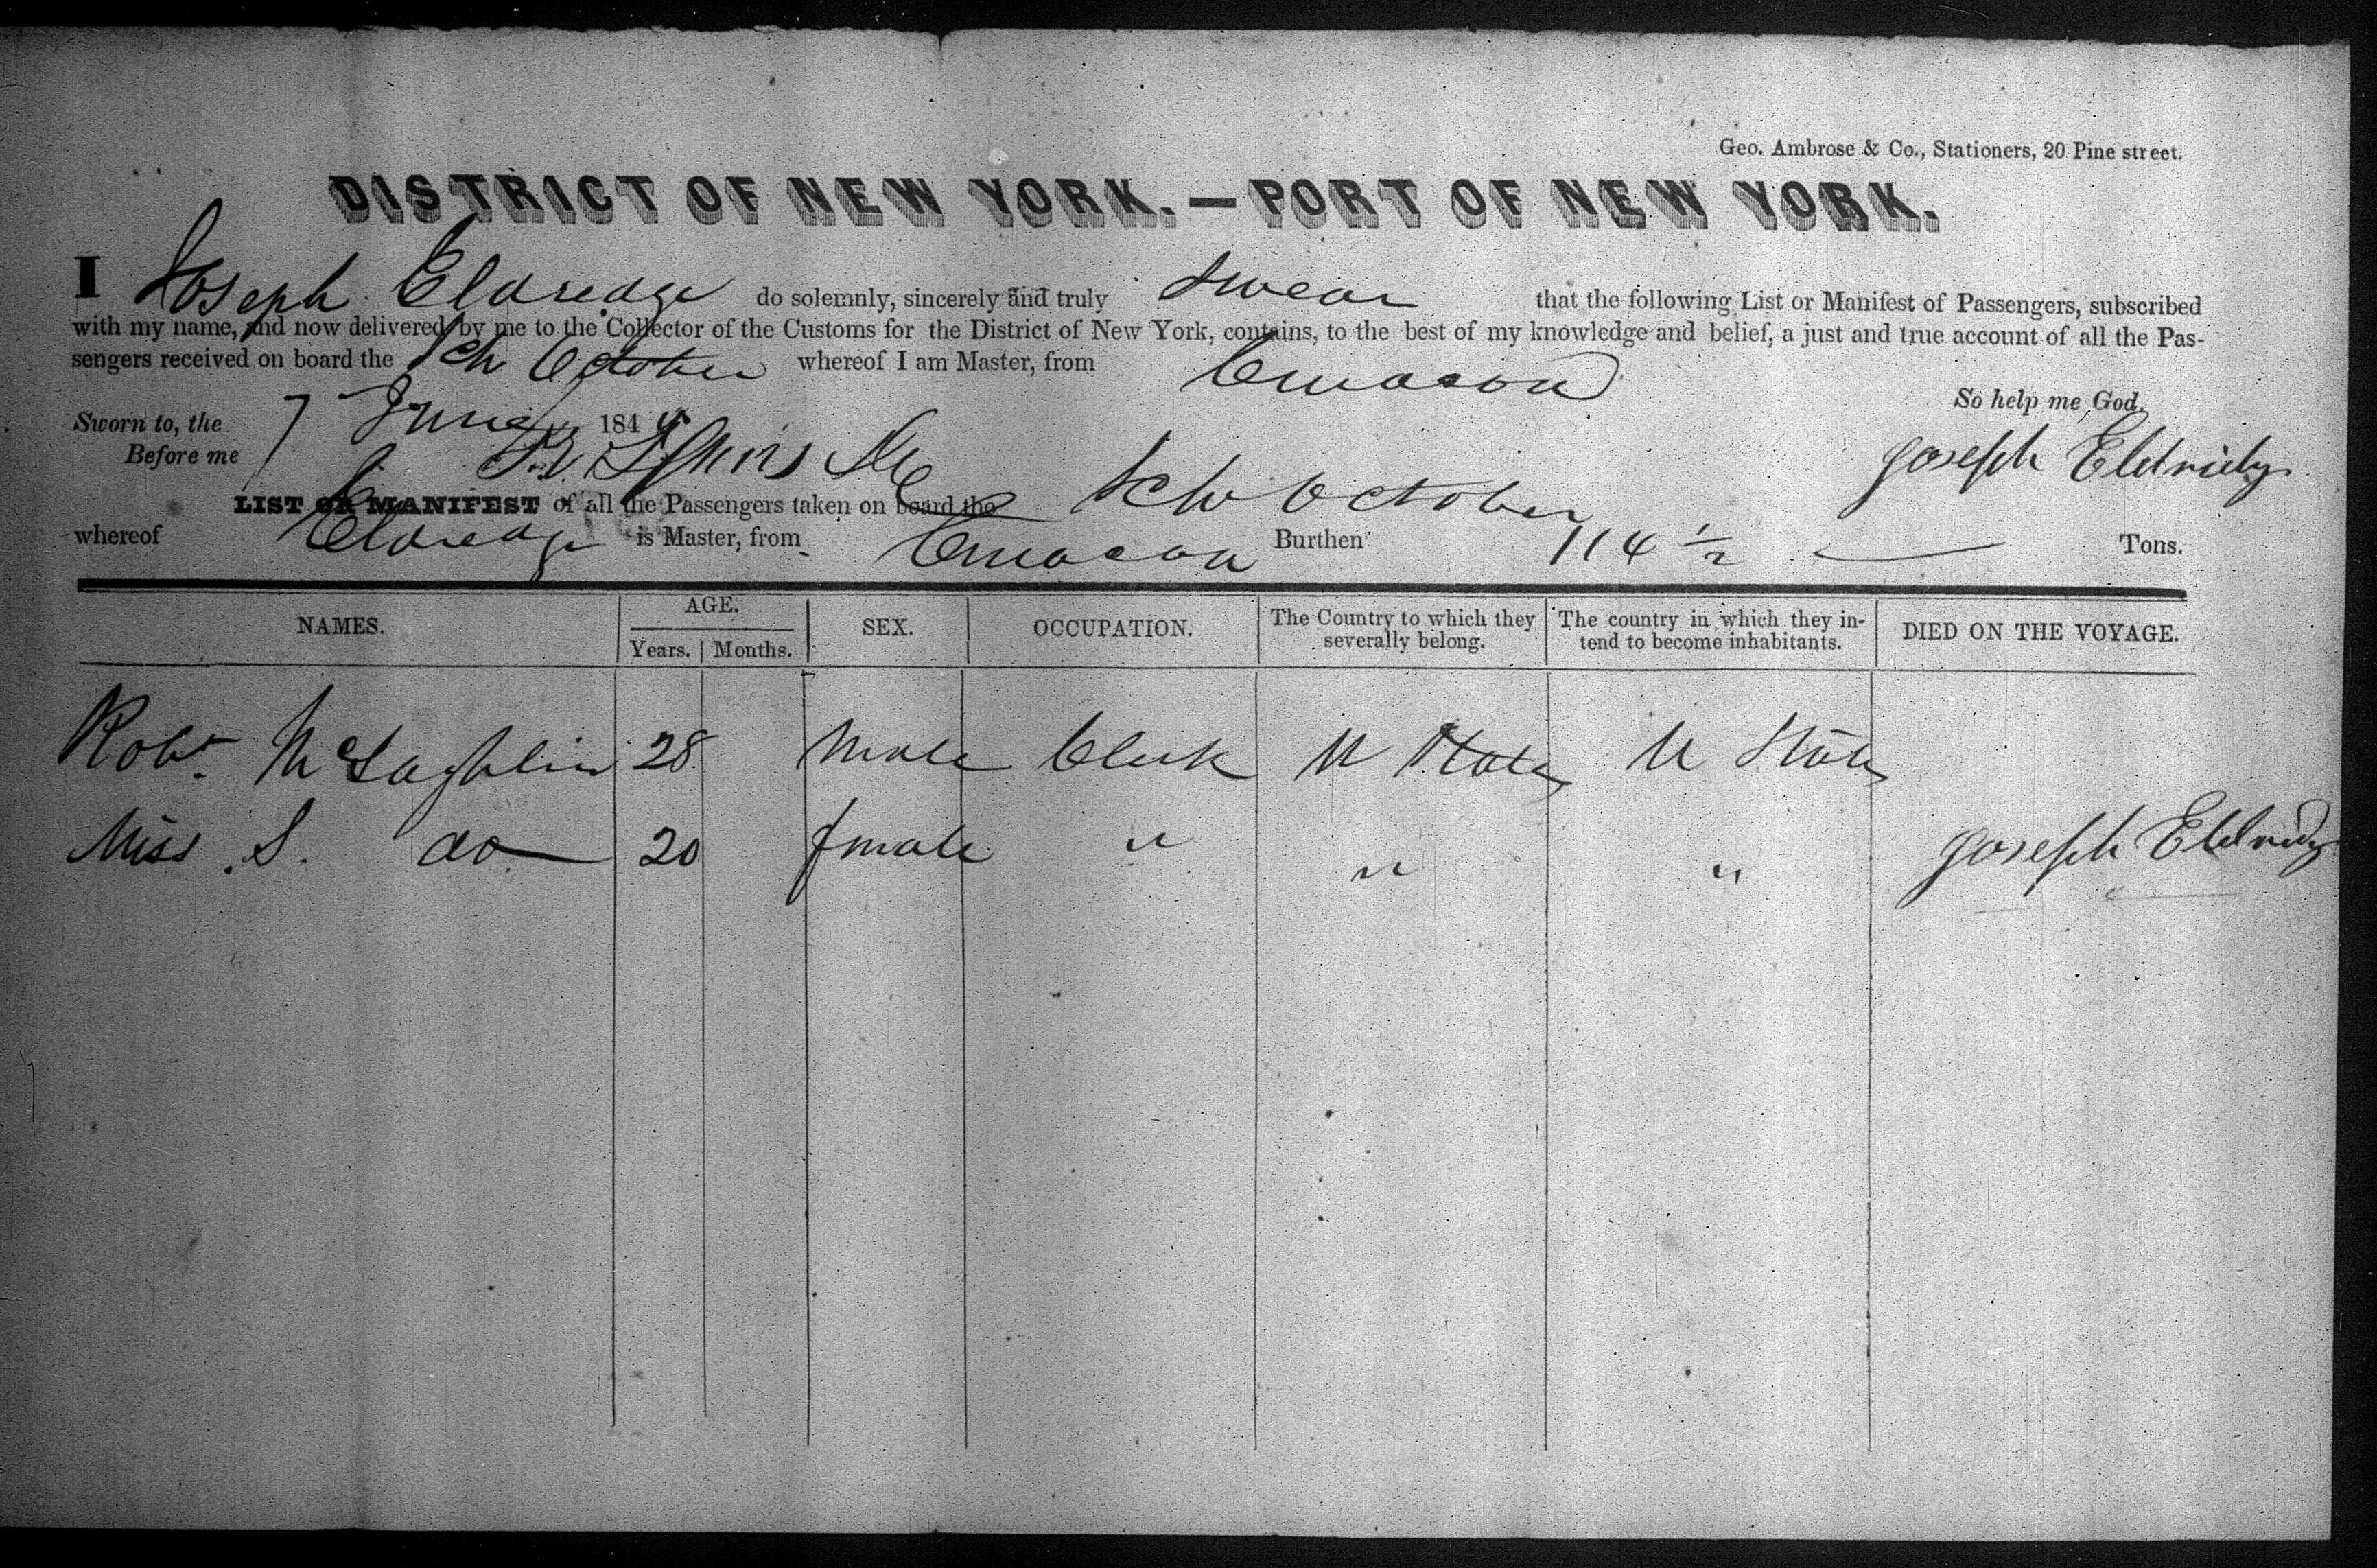 Geo. Ambrose & Co., Stationers, 20 Pine street.
DISTRICT OF NEW YORK.—PORT OF NEW YORK.
I Joseph Eldredge do solemnly, sincerely and truly swear that the following List or Manifest of Passengers, subscribed
with my name, and now delivered by me to the Collector of the Customs for the District of New York, contains, to the best of my knowledge and belief, a just and true account of all the Pas-
sengers received on board the Sch October whereof I am Master, from Curacoa
So help me God.
Sworn to, the 7 June 184
Before me
Joseph Eldridg
LIST OR MANIFEST of all the Passengers taken on board the Sch October
whereof Eldredge is Master, from Curacoa Burthen 114 ½ Tons.
NAMES. AGE. SEX. OCCUPATION. The Country to which they severally belong. The country in which they in-tend to become inhabitants. DIED ON THE VOYAGE.
Years. Months.
Robt McLaghlin 28 Male Clerk U States U States
Miss S. do 20 fmale " " " Joseph Eldridg